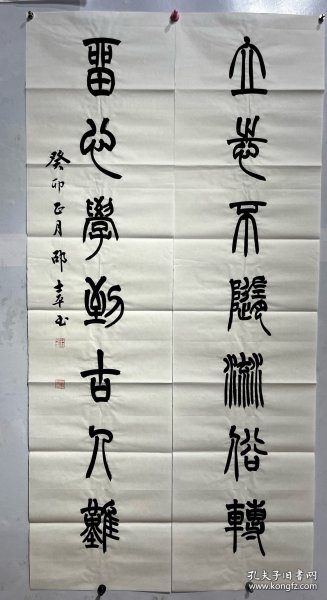 立志不随流俗轉
留心學到古人難
癸卯正月邵士平书
孔夫子旧书网
www.kongfz.com